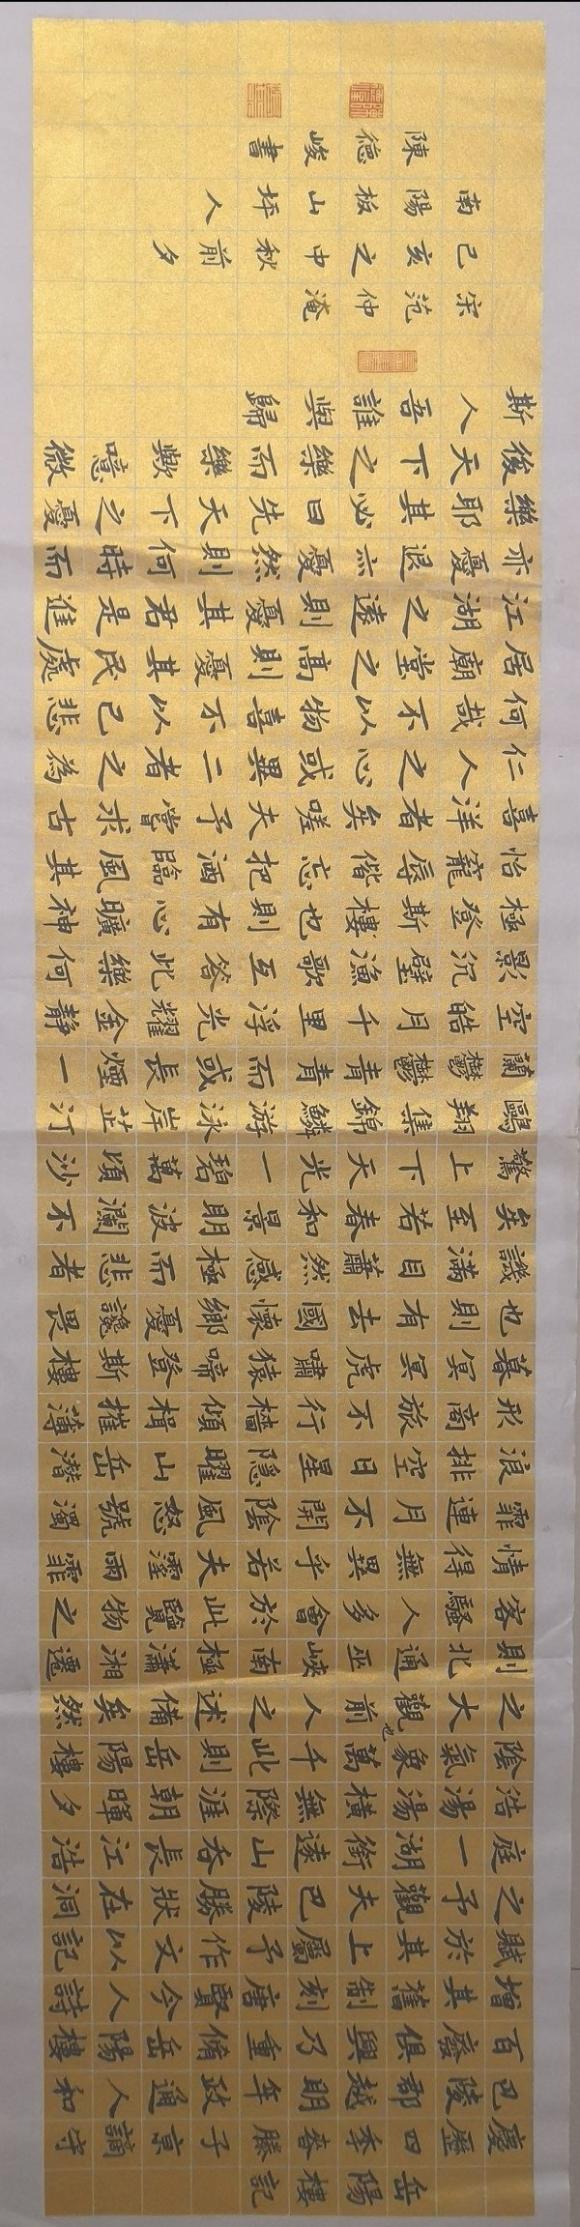 岳陽樓記
慶歷四季春滕子京謫守
巴陵郡越明年政通人和
百廢俱興乃重脩岳陽樓
增其舊制刻唐賢今人詩
賦於其上屬予作文以記
之予觀夫巴陵勝狀在洞
庭一湖銜遠山吞長江浩
浩湯湯橫無際涯朝暉夕
陰氣象萬千此則岳陽樓
之大觀也前人之述備矣然
則北通巫峽南極瀟湘遷
客騷人多會於此覽物之
情得無異乎若夫霪雨霏
霏連月不開陰風怒號濁
浪排空日星隱曜山岳潛
形商旅不行檣傾楫摧薄
暮冥冥虎嘯猿啼登斯樓
也則有去國懷鄉憂讒畏
譏滿目蕭然感極而悲者
矣至若春和景明波瀾不
驚上下天光一碧萬頃沙
鷗翔集錦鱗游泳岸芷汀
蘭鬱鬱青青而或長煙一
空皓月千里浮光耀金靜
影沉璧漁歌互答此樂何
極登斯樓也則有心曠神
怡寵辱偕忘把酒臨風其
喜洋者矣嗟夫予嘗求古
仁人之心或異二者之為
何哉不以物喜不以己悲
居廟堂之高則憂其民處
江湖之遠則憂其君是進
亦憂退亦憂然則何時而
樂耶其必曰先天下之憂
後天下之樂而樂歟噫微
斯人吾誰與歸
宋范仲淹
己亥之中秋前夕
南陽板山坪人
陳德峻書